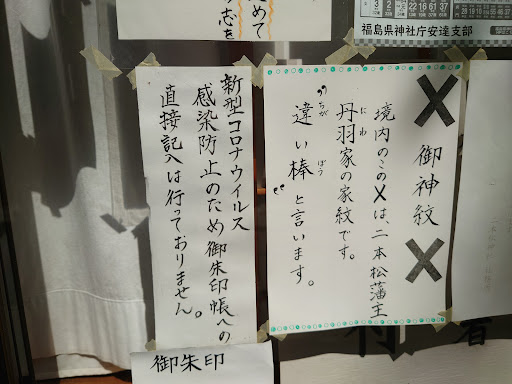 福島県神社庁安達支部
めて
志を
✕ 御神紋 ✕
境内のこの✕は、二本松藩主
丹羽家の家紋です。
にわ
違い棒と言います。
ちが ぼう
新型コロナウイルス
感染防止のため御朱印帳への
直接記入は行っておりません。
御朱印